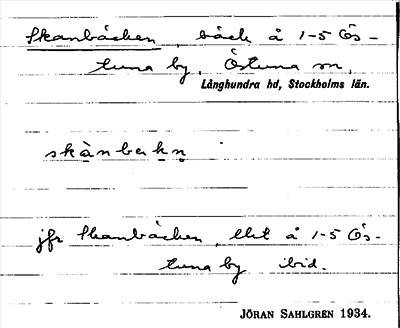 Skanbäcken, bäck å 1-5 Ös-
tuna by, Östuna sn,
Långhundra hd, Stockholms län.
skànbekn̥
jfr Skanbäcken, llet å 1-5 Ös-
tuna by ibid.
JÖRAN SAHLGREN 1934.